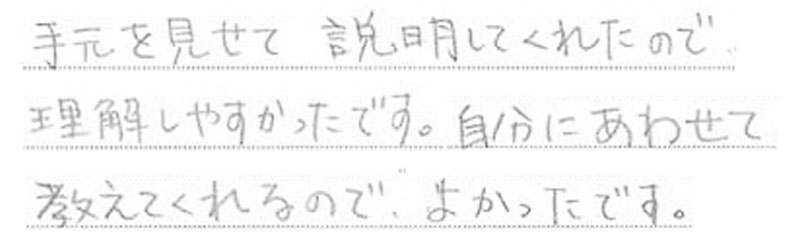 手元を見せて 説明してくれたので
理解しやすかったです。自分にあわせて
教えてくれるので、よかったです。